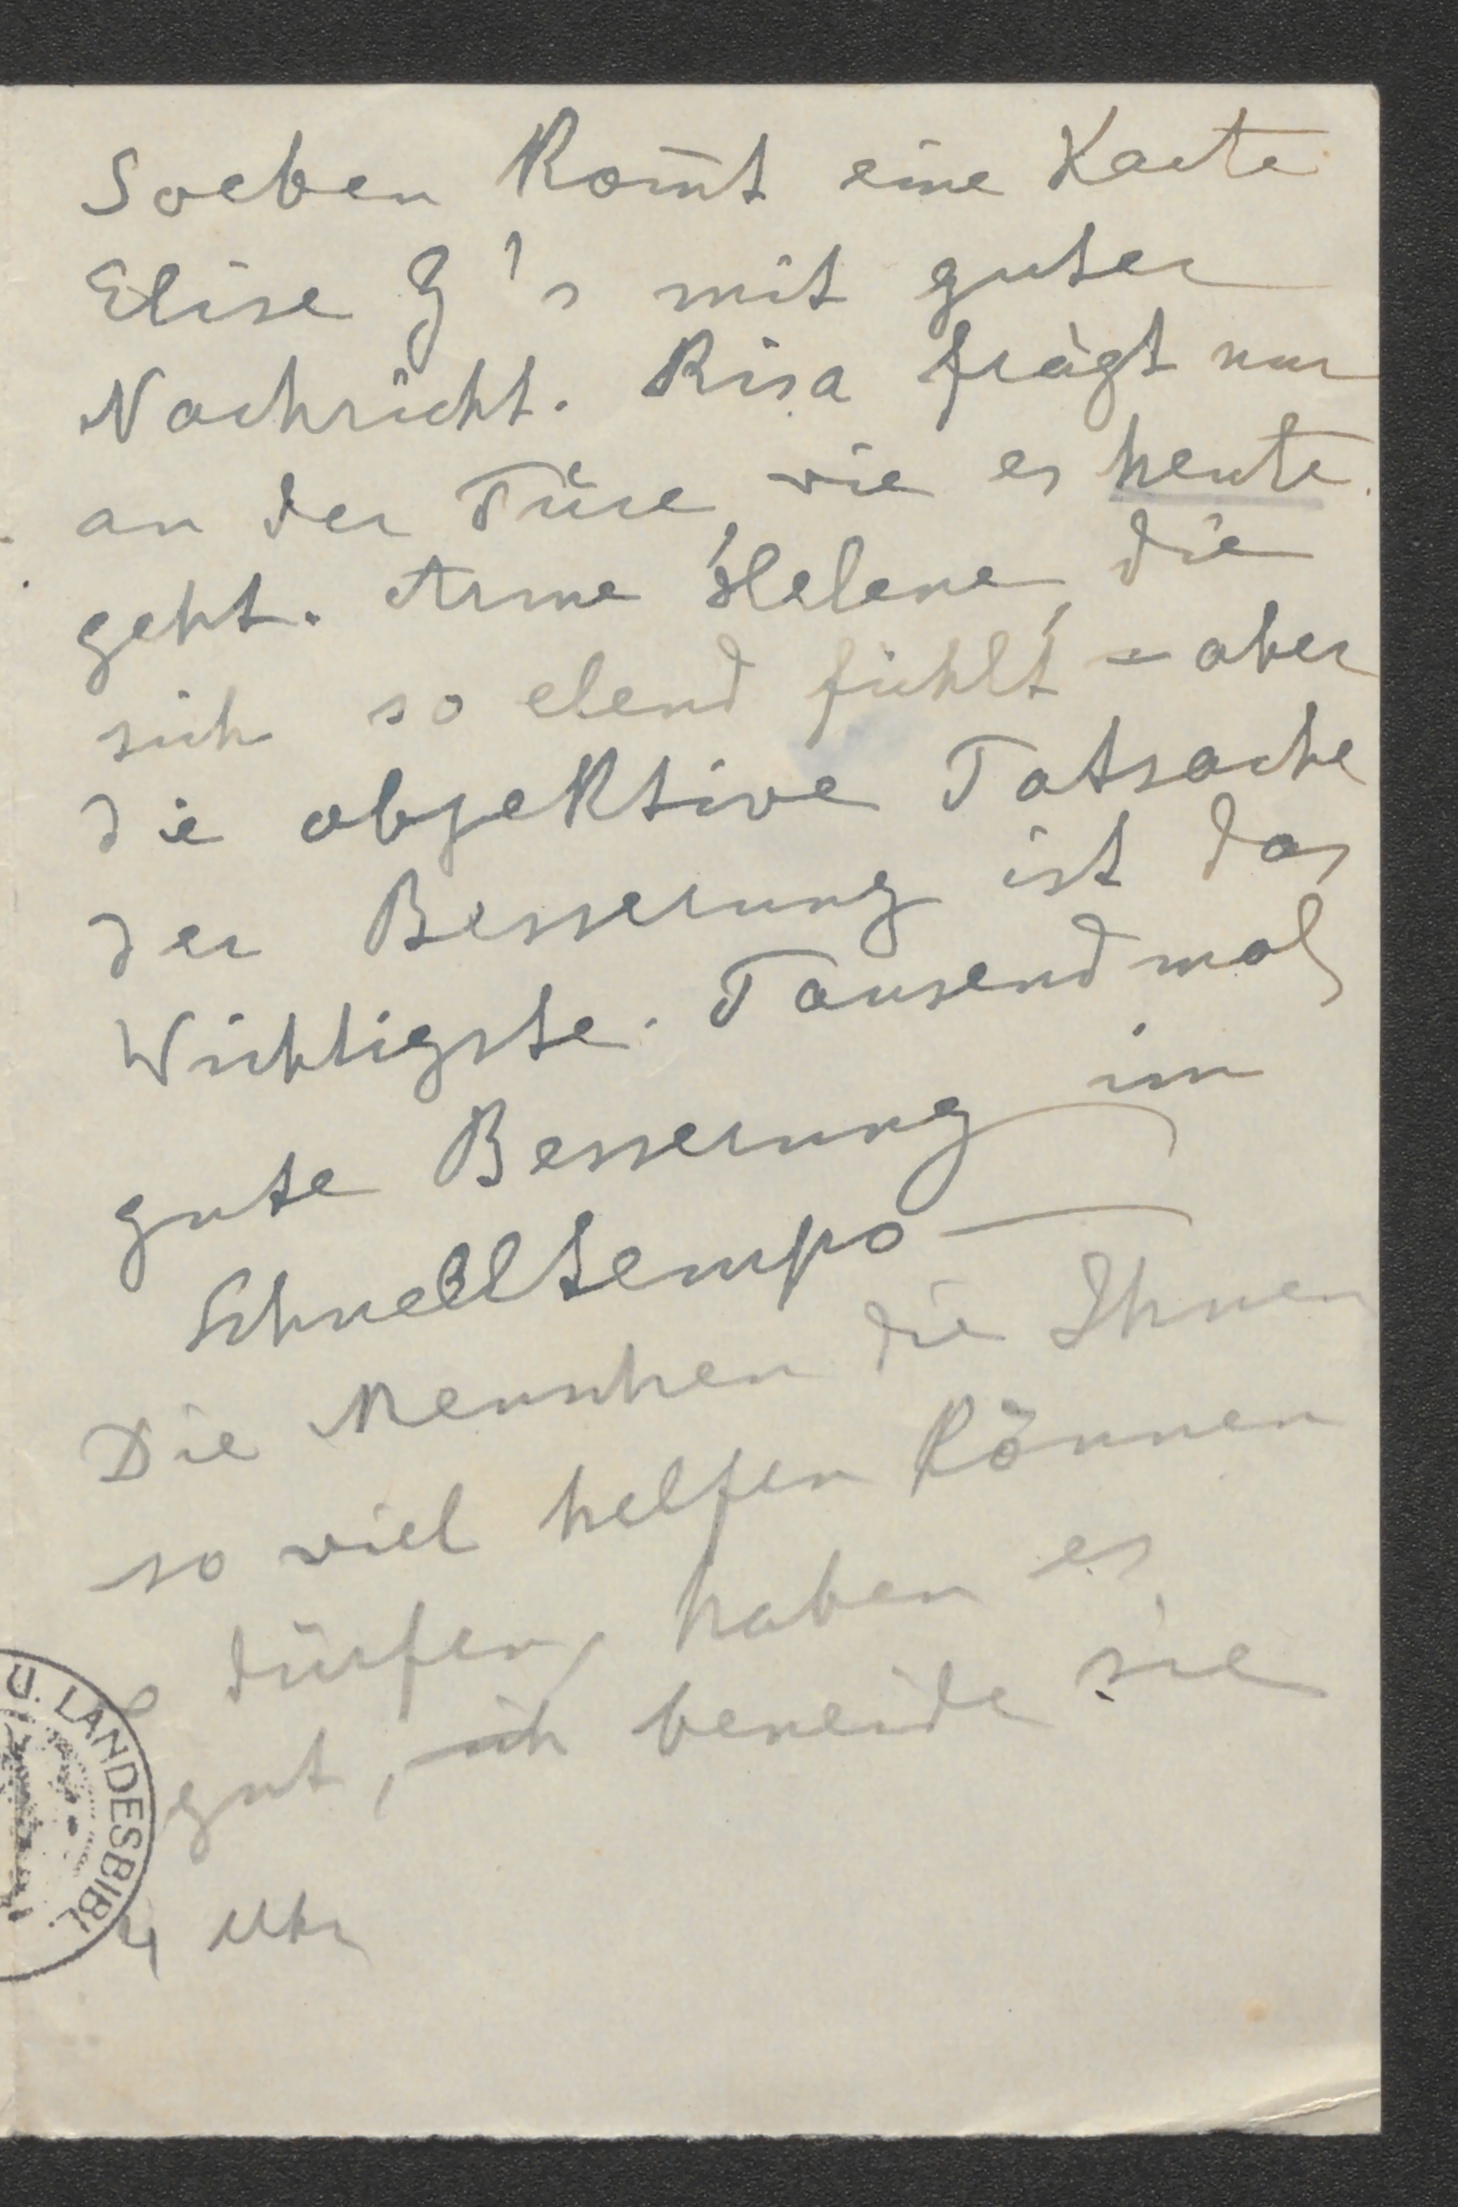 Soeben kom̄t eine Karte
Elise Z's mit guter
Nachricht. Risa frägt nur
an der Türe, wie es heute
geht. Arme Helene, die
sich so elend fühlt – aber
die objektive Tatsache
der Besserung ist das
Wichtigste. Tausendmal
gute Besserung im
Schnelltempo —
Die Menschen die Ihnen
so viel helfen können
& dürfen, haben es
gut, ich beneide sie
U. LANDESBIBL.
4 Uhr